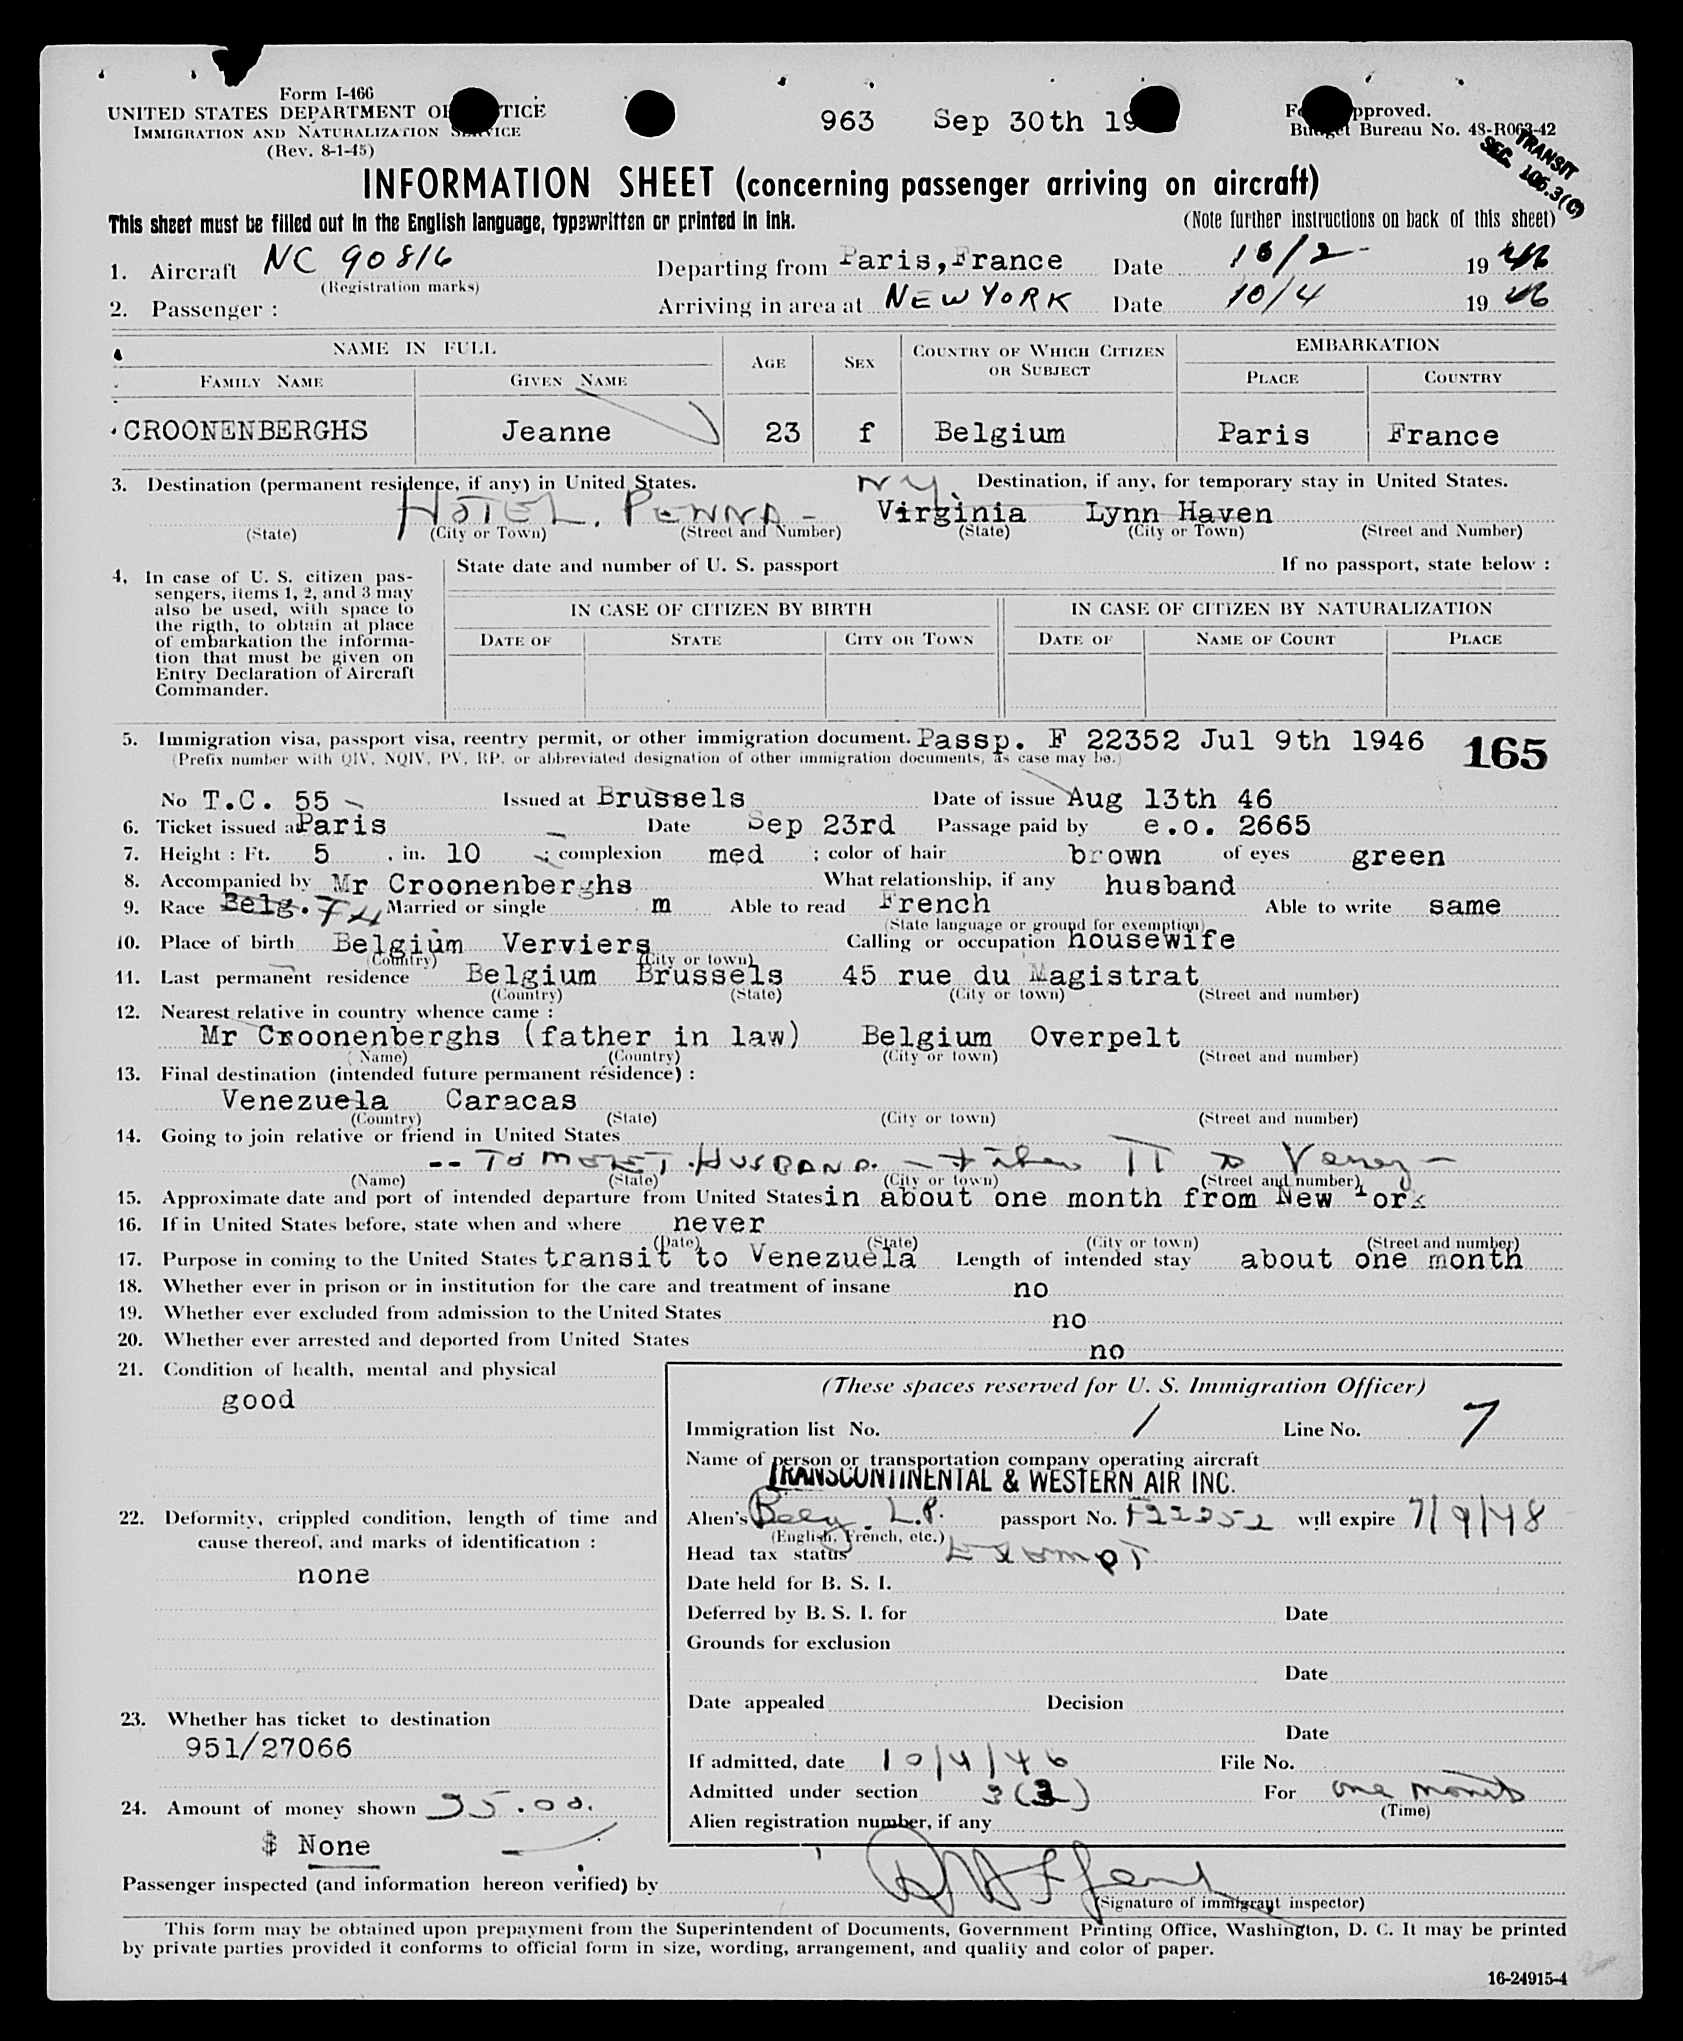 Form I-466
UNITED STATES DEPARTMENT OF JUSTICE
IMMIGRATION AND NATURALIZATION SERVICE
(Rev. 8-1-45)
963 Sep 30th 19
Form approved.
Budget Bureau No. 48-R063-42
TRANSIT
SEC. 106.3(C)
INFORMATION SHEET (concerning passenger arriving on aircraft)
This sheet must be filled out in the English language, typewritten or printed in ink. (Note further instructions on back of this sheet)
1. Aircraft NC 90816 Departing from Paris,France Date 10/2- 1946
(Registration marks)
2. Passenger : Arriving in area at NEW YORK Date 10/4 1946
NAME IN FULL AGE SEX COUNTRY OF WHICH CITIZEN OR SUBJECT EMBARKATION
FAMILY NAME GIVEN NAME PLACE COUNTRY
CROONENBERGHS Jeanne 23 f Belgium Paris France
3. Destination (permanent residence, if any) in United States. NY Destination, if any, for temporary stay in United States.
HOTEL. PENNA - Virginia Lynn Haven
(State) (City or Town) (Street and Number) (State) (City or Town) (Street and Number)
4. In case of U. S. citizen passengers, items 1, 2, and 3 may
also be used, with space to
the rigth, to obtain at place
of embarkation the information that must be given on
Entry Declaration of Aircraft
Commander.
State date and number of U. S. passport If no passport, state below :
IN CASE OF CITIZEN BY BIRTH IN CASE OF CITIZEN BY NATURALIZATION
DATE OF STATE CITY OR TOWN DATE OF NAME OF COURT PLACE
5. Immigration visa, passport visa, reentry permit, or other immigration document. Passp. F 22352 Jul 9th 1946
(Prefix number with QIV, NQIV, PV, RP, or abbreviated designation of other immigration documents, as case may be.) 165
No T.C. 55 Issued at Brussels Date of issue Aug 13th 46
6. Ticket issued at Paris Date Sep 23rd Passage paid by e.o. 2665
7. Height : Ft. 5 , in. 10 ; complexion med ; color of hair brown of eyes green
8. Accompanied by Mr Croonenberghs What relationship, if any husband
9. Race Belg. Married or single m Able to read French Able to write same
(State language or ground for exemption)
10. Place of birth Belgium Verviers Calling or occupation housewife
(Country) (City or town)
11. Last permanent residence Belgium Brussels 45 rue du Magistrat
(Country) (State) (City or town) (Street and number)
12. Nearest relative in country whence came :
Mr Croonenberghs (father in law) Belgium Overpelt
(Name) (Country) (City or town) (Street and number)
13. Final destination (intended future permanent résidence) :
Venezuela Caracas
(Country) (State) (City or town) (Street and number)
14. Going to join relative or friend in United States
-- TO MEET HUSBAND. - + then TT to Venez -
(Name) (State) (City or town) (Street and number)
15. Approximate date and port of intended departure from United States in about one month from New York
16. If in United States before, state when and where never
(Date) (State) (City or town) (Street and number)
17. Purpose in coming to the United States transit to Venezuela Length of intended stay about one month
18. Whether ever in prison or in institution for the care and treatment of insane no
19. Whether ever excluded from admission to the United States no
20. Whether ever arrested and deported from United States no
21. Condition of health, mental and physical
good
22. Deformity, crippled condition, length of time and
cause thereof, and marks of identification :
none
23. Whether has ticket to destination
951/27066
24. Amount of money shown 95.00.
$ None
(These spaces reserved for U. S. Immigration Officer)
Immigration list No. 1 Line No. 7
Name of person or transportation company operating aircraft
TRANSCONTINENTAL & WESTERN AIR INC.
Alien's Belg. L.P. passport No. F22352 will expire 7/9/48
(English, French, etc.)
Head tax status Exempt
Date held for B. S. I.
Deferred by B. S. I. for Date
Grounds for exclusion
Date
Date appealed Decision
Date
If admitted, date 10/4/46 File No.
Admitted under section 3(3) For one month
(Time)
Alien registration number, if any
Passenger inspected (and information hereon verified) by
(Signature of immigrant inspector)
This form may be obtained upon prepayment from the Superintendent of Documents, Government Printing Office, Washington, D. C. It may be printed
by private parties provided it conforms to official form in size, wording, arrangement, and quality and color of paper.
16-24915-4